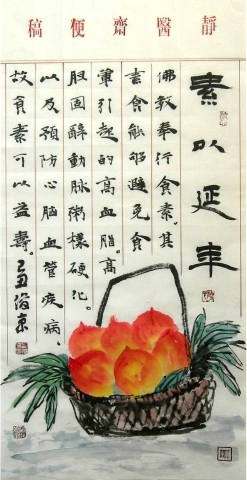 靜醫齋梗稿
素以延年
佛教奉行食素。其
素食能够避免食
葷引起的高血脂。高
胆固醇動脉粥樣硬化。
以及預防心腦血管疾病，
故食素可以益壽。己丑海京